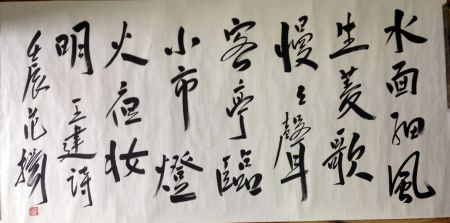 水面細風
生菱歌
慢々聲
客亭臨
小市燈
火夜妆
明 王建詩
壬辰 范